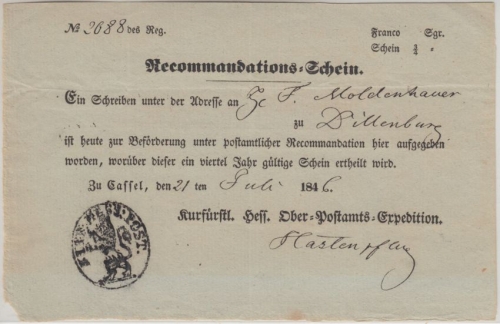 № 2688 des Reg.
Franco Sgr.
Schein ¾ "
Recommandations-Schein.
Ein Schreiben unter der Adresse an F. Moldenhauer
zu Dillenburg
ist heute zur Beförderung unter postamtlicher Recommandation hier aufgegeben
worden, worüber dieser ein viertel Jahr gültige Schein ertheilt wird.
Zu Cassel, den 21 ten Juli 1846.
Kurfürstl. Hess. Ober-Postamts-Expedition.
Hastenpflug
KURF. HESS. POST.